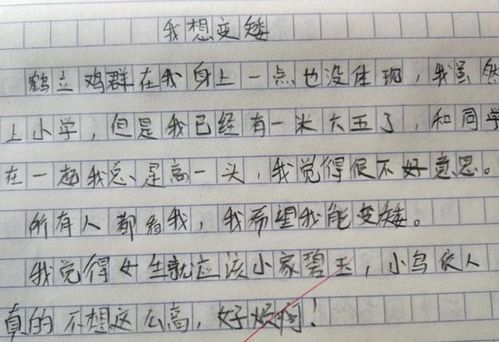 我想变矮
鹤立鸡群在我身上一点也没体现，我虽然
上小学，但是我已经有一米大五了，和同学
在一起我总是高一头，我觉得很不好意思。
所有人都看我，我希望我能变矮。
我觉得女生就应该小家碧玉，小鸟依人
真的不想这么高，好烦闷！